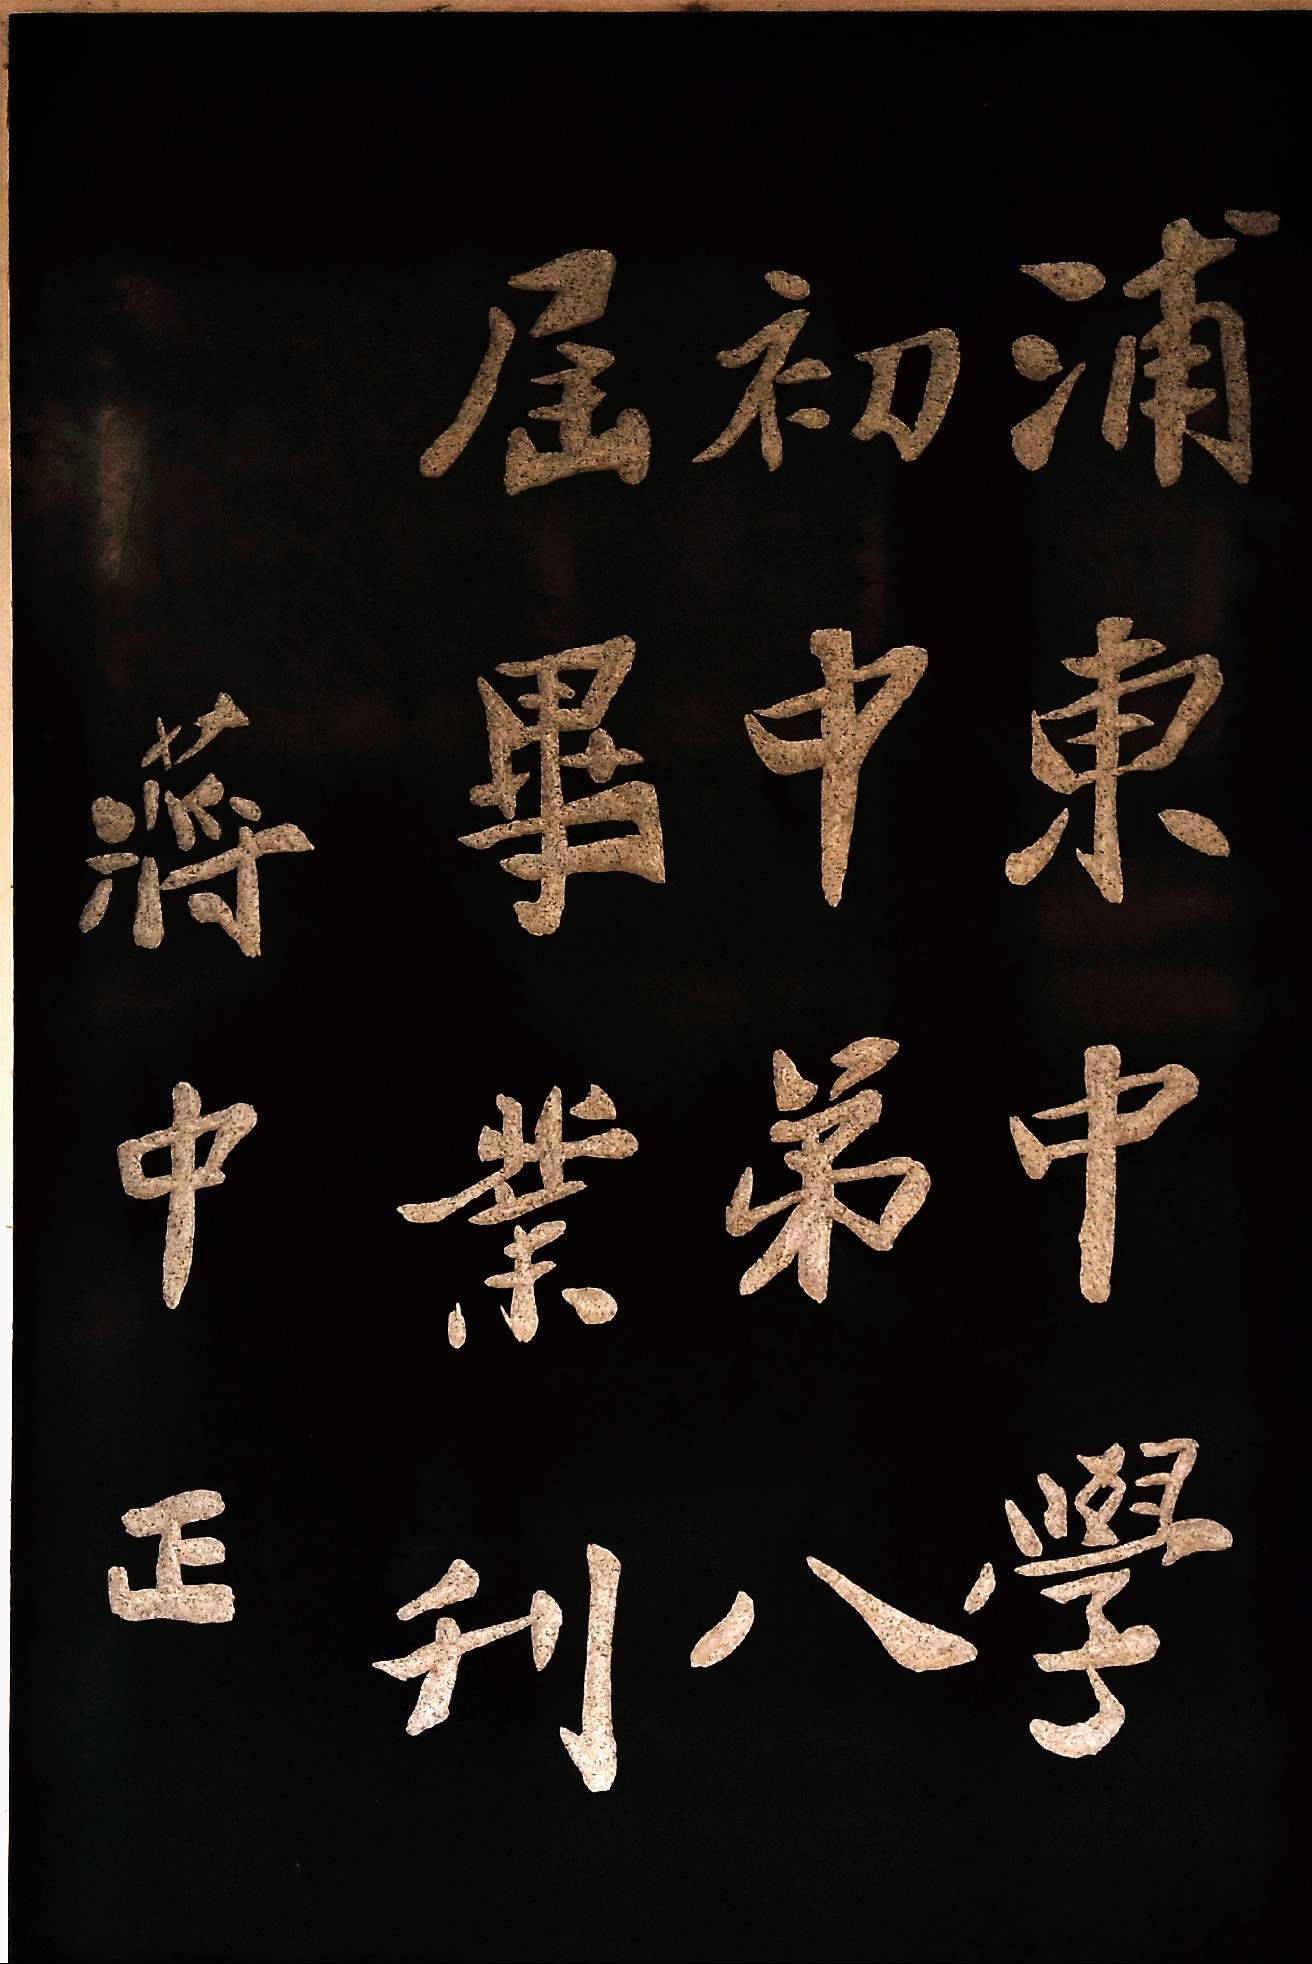 浦東中學
初中第八
屆畢業刊
蔣中正